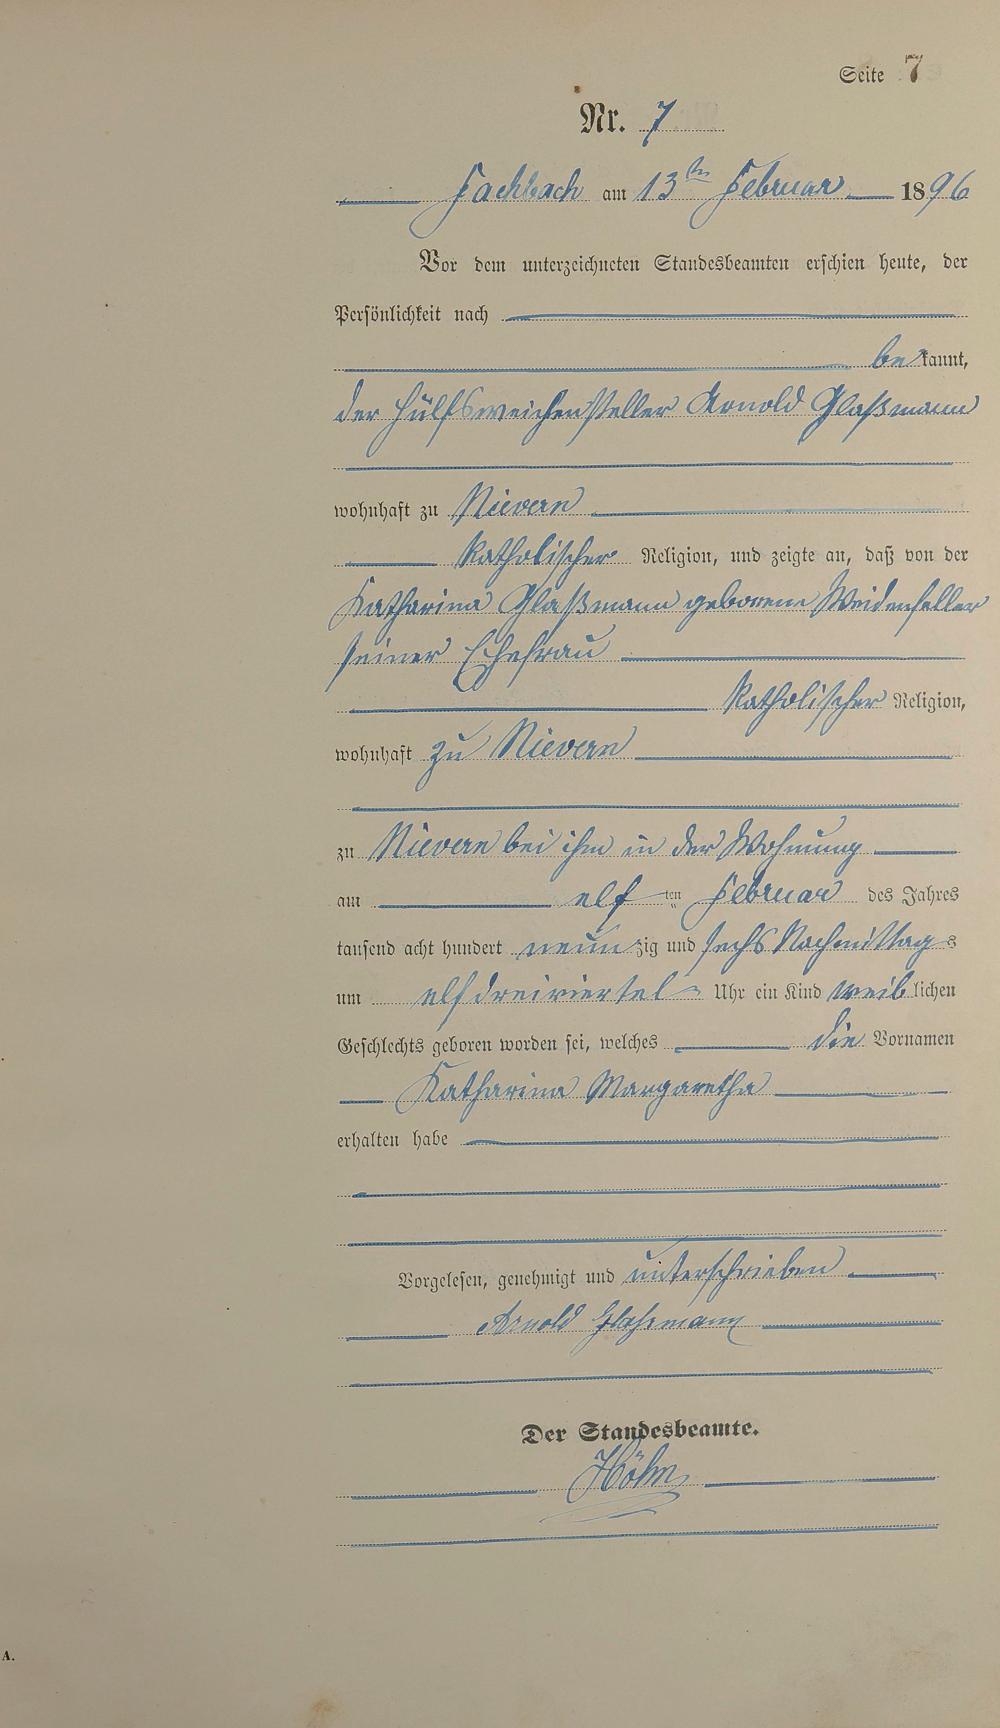 Seite 7
Nr. 7
Fachbach am 13ten Februar 1896
Vor dem unterzeichneten Standesbeamten erschien heute, der
Persönlichkeit nach
bekannt,
der Hülfsweichensteller Arnold Glaßmann
wohnhaft zu Nievern
katholischer Religion, und zeigte an, daß von der
Katharina Glaßmann geborene Weidenfeller
seiner Ehefrau
katholischer Religion,
wohnhaft zu Nievern
zu Nievern bei ihm in der Wohnung
am elften Februar des Jahres
tausend acht hundert neunzig und sechs Nachmittags
um elf dreiviertel Uhr ein Kind weiblichen
Geschlechts geboren worden sei, welches die Vornamen
Katharina Margaretha
erhalten habe
Vorgelesen, genehmigt und unterschrieben
Arnold Glaßmann
Der Standesbeamte.
A.